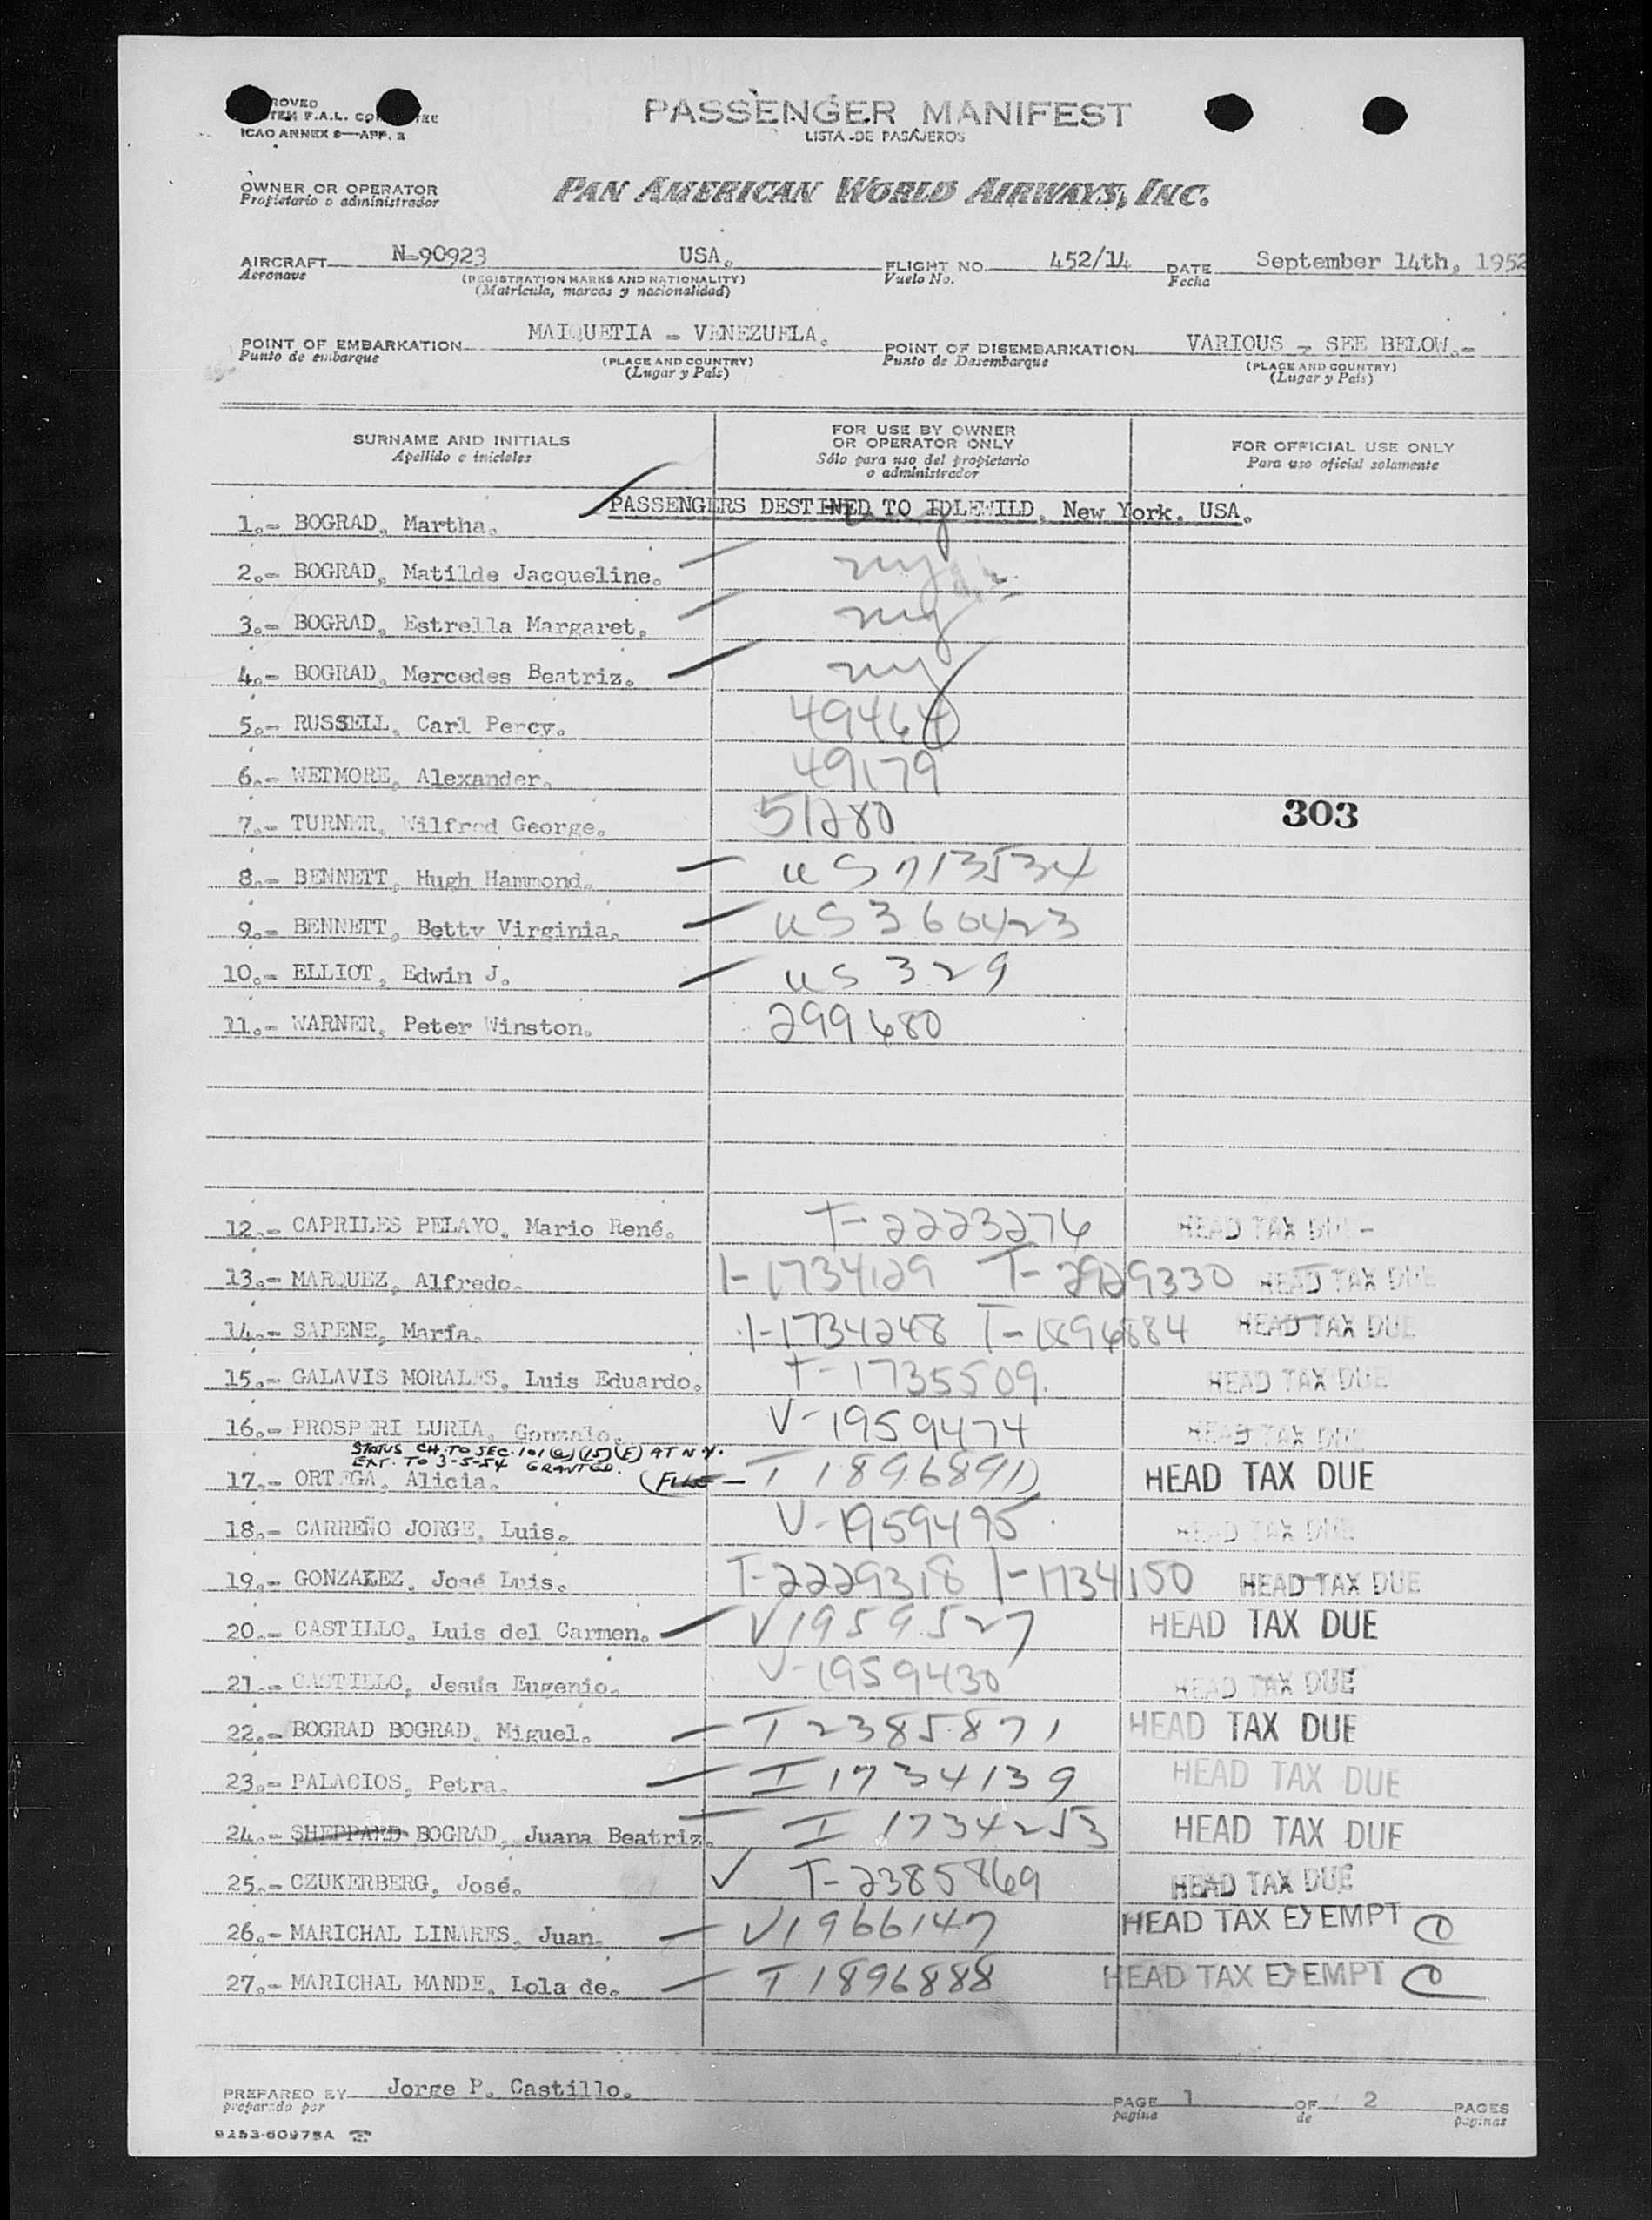 ROVED
TEM F.A.L. CO
ICAO ANNEX 9—APP. 2
PASSENGER MANIFEST
LISTA DE PASAJEROS
OWNER OR OPERATOR
Propietario o administrador
PAN AMERICAN WORLD AIRWAYS, INC.
AIRCRAFT N-90923 USA. FLIGHT NO. 452/14 DATE September 14th, 1952
Aeronave (REGISTRATION MARKS AND NATIONALITY) Vuelo No. Fecha
(Matrícula, marcas y nacionalidad)
POINT OF EMBARKATION MAIQUETIA - VENEZUELA. POINT OF DISEMBARKATION VARIOUS - SEE BELOW.-
Punto de embarque (PLACE AND COUNTRY) Punto de Desembarque (PLACE AND COUNTRY)
(Lugar y País) (Lugar y País)
SURNAME AND INITIALS FOR USE BY OWNER OR OPERATOR ONLY FOR OFFICIAL USE ONLY
Apellido e iniciales Sólo para uso del propietario o administrador Para uso oficial solamente
PASSENGERS DESTINED TO IDLEWILD, New York. USA.
1.- BOGRAD, Martha. ny
2.- BOGRAD, Matilde Jacqueline. ny
3.- BOGRAD, Estrella Margaret. ny
4.- BOGRAD, Mercedes Beatriz. ny
5.- RUSSELL, Carl Percy. 49464
6.- WETMORE, Alexander. 49179
7.- TURNER, Wilfred George. 51280 303
8.- BENNETT, Hugh Hammond. US 713534
9.- BENNETT, Betty Virginia. US 360423
10.- ELLIOT, Edwin J. US 329
11.- WARNER, Peter Winston. 299680
12.- CAPRILES PELAYO, Mario René. T-2223276 HEAD TAX DUE
13.- MARQUEZ, Alfredo. I-1734129 T-2929330 HEAD TAX DUE
14.- SAPENE, María. I-1734248 T-1896884 HEAD TAX DUE
15.- GALAVIS MORALES, Luis Eduardo. T-1735509. HEAD TAX DUE
16.- PROSPERI LURIA, Gonzalo. V-1959474 HEAD TAX DUE
STATUS CH. TO SEC. 101(a)(15)(E) AT N.Y.
EXT. TO 3-5-54 GRANTED.
17.- ORTEGA, Alicia. (FILE- T 1896891) HEAD TAX DUE
18.- CARREÑO JORGE, Luis. V-1959495 HEAD TAX DUE
19.- GONZALEZ, José Luis. T-2229318 I-1734150 HEAD TAX DUE
20.- CASTILLO, Luis del Carmen. V1959527 HEAD TAX DUE
21.- CASTILLO, Jesús Eugenio. V-1959430 HEAD TAX DUE
22.- BOGRAD BOGRAD, Miguel. T 2385871 HEAD TAX DUE
23.- PALACIOS, Petra. I 1734139 HEAD TAX DUE
24.- SHEPPARD BOGRAD, Juana Beatriz. I 1734253 HEAD TAX DUE
25.- CZUKERBERG, José. T-2385869 HEAD TAX DUE
26.- MARICHAL LINARES, Juan. V1966147 HEAD TAX EXEMPT
27.- MARICHAL MANDE, Lola de. T 1896888 HEAD TAX EXEMPT
PREPARED BY Jorge P. Castillo. PAGE 1 OF 2 PAGES
preparado por pagina de paginas
9253-60978A